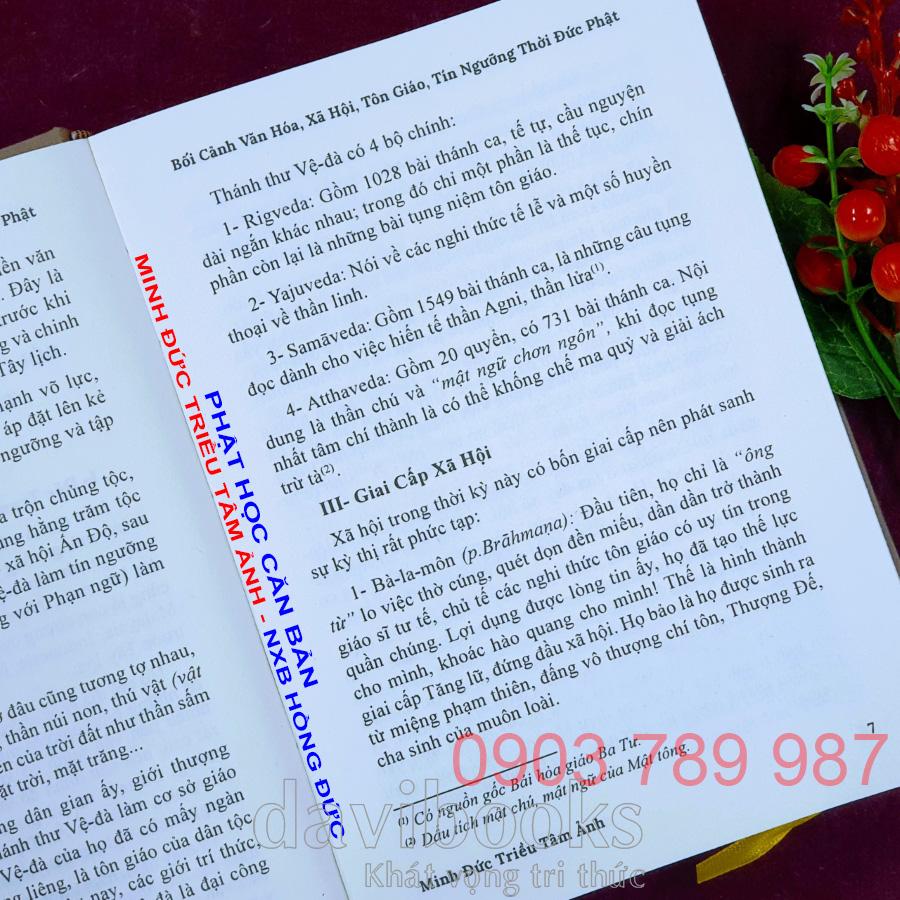 Phật
ền văn
. Đây là
trước khi
g và chinh
Tây lịch.
ạnh võ lực,
áp đặt lên kẻ
ngưỡng và tập
a trộn chủng tộc,
ung hằng trăm tộc
xã hội Ấn Độ, sau
ệ-đà làm tín ngưỡng
g với Phạn ngữ) làm
đâu cũng tương tợ nhau,
, thần núi non, thú vật (vật
ên của trời đất như thần sấm
ặt trời, mặt trăng...
ng dân gian ấy, giới thượng
hánh thư Vệ-đà làm cơ sở giáo
Vệ-đà của họ đã có mấy ngàn
g liêng, là tôn giáo của dân tộc
nay, các giới trí thức,
đà là đại công
Bối Cảnh Văn Hóa, Xã Hội, Tôn Giáo, Tín Ngưỡng Thời Đức Phật
Thánh thư Vệ-đà có 4 bộ chính:
1- Rigveda: Gồm 1028 bài thánh ca, tế tự, cầu nguyện
dài ngắn khác nhau; trong đó chỉ một phần là thế tục, chín
phần còn lại là những bài tụng niệm tôn giáo.
2- Yajuveda: Nói về các nghi thức tế lễ và một số huyền
thoại về thần linh.
3- Samāveda: Gồm 1549 bài thánh ca, là những câu tụng
đọc dành cho việc hiến tế thần Agni, thần lửa(1).
4- Atthaveda: Gồm 20 quyển, có 731 bài thánh ca. Nội
dung là thần chú và “mật ngữ chơn ngôn”, khi đọc tụng
nhất tâm chí thành là có thể khống chế ma quỷ và giải ách
trừ tà(2).
III- Giai Cấp Xã Hội
Xã hội trong thời kỳ này có bốn giai cấp nên phát sanh
sự kỳ thị rất phức tạp:
1- Bà-la-môn (p.Brāhmana): Đầu tiên, họ chỉ là “ông
từ” lo việc thờ cúng, quét dọn đền miếu, dần dần trở thành
giáo sĩ tư tế, chủ tế các nghi thức tôn giáo có uy tín trong
quần chúng. Lợi dụng được lòng tin ấy, họ đã tạo thế lực
cho mình, khoác hào quang cho mình! Thế là hình thành
giai cấp Tăng lữ, đứng đầu xã hội. Họ bảo là họ được sinh ra
từ miệng phạm thiên, đấng vô thượng chí tôn, Thượng Đế,
cha sinh của muôn loài.
7
(1) Có nguồn gốc Bái hỏa giáo Ba Tư.
(2) Dấu tích mật chú, mật ngữ của Mật tông.
Minh Đức Triều Tâm Ảnh
PHẬT HỌC CĂN BẢN
MINH ĐỨC TRIỀU TÂM ẢNH - NXB HỒNG ĐỨC
0903 789 987
davibooks
Khát vọng tri thức